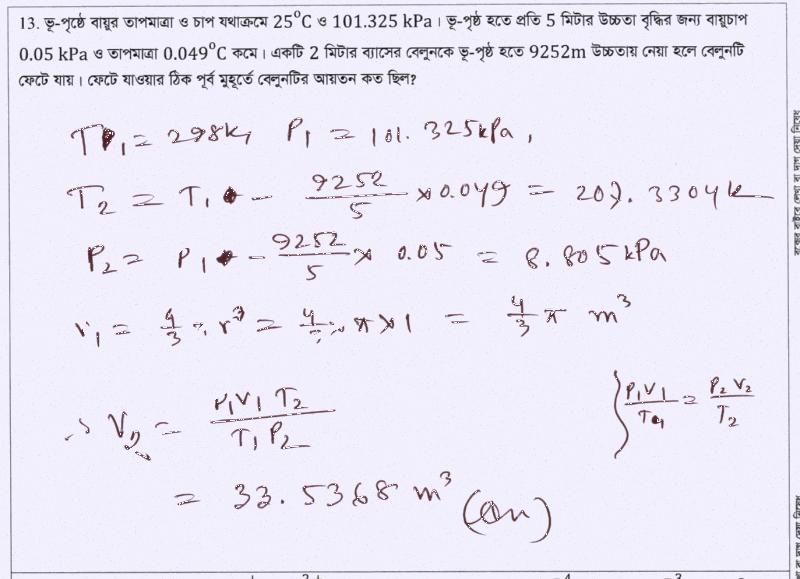 13. ভূ-পৃষ্ঠে বায়ুর তাপমাত্রা ও চাপ যথাক্রমে 25°C ও 101.325 kPa। ভূ-পৃষ্ঠ হতে প্রতি 5 মিটার উচ্চতা বৃদ্ধির জন্য বায়ুচাপ
0.05 kPa ও তাপমাত্রা 0.049°C কমে। একটি 2 মিটার ব্যাসের বেলুনকে ভূ-পৃষ্ঠ হতে 9252m উচ্চতায় নেয়া হলে বেলুনটি
ফেটে যায়। ফেটে যাওয়ার ঠিক পূর্ব মুহূর্তে বেলুনটির আয়তন কত ছিল?
T₁ = 298K, P₁ = 101.325kPa,
T₂ = T₁ - 9252/5 × 0.049 = 207.3304K
P₂ = P₁ - 9252/5 × 0.05 = 8.805 kPa
V₁ = 4/3 π r³ = 4/3 × π × 1 = 4/3 π m³
∴ V₂ = P₁V₁T₂/T₁P₂
P₁V₁/T₁ = P₂V₂/T₂
= 33.5368 m³ (Ans)